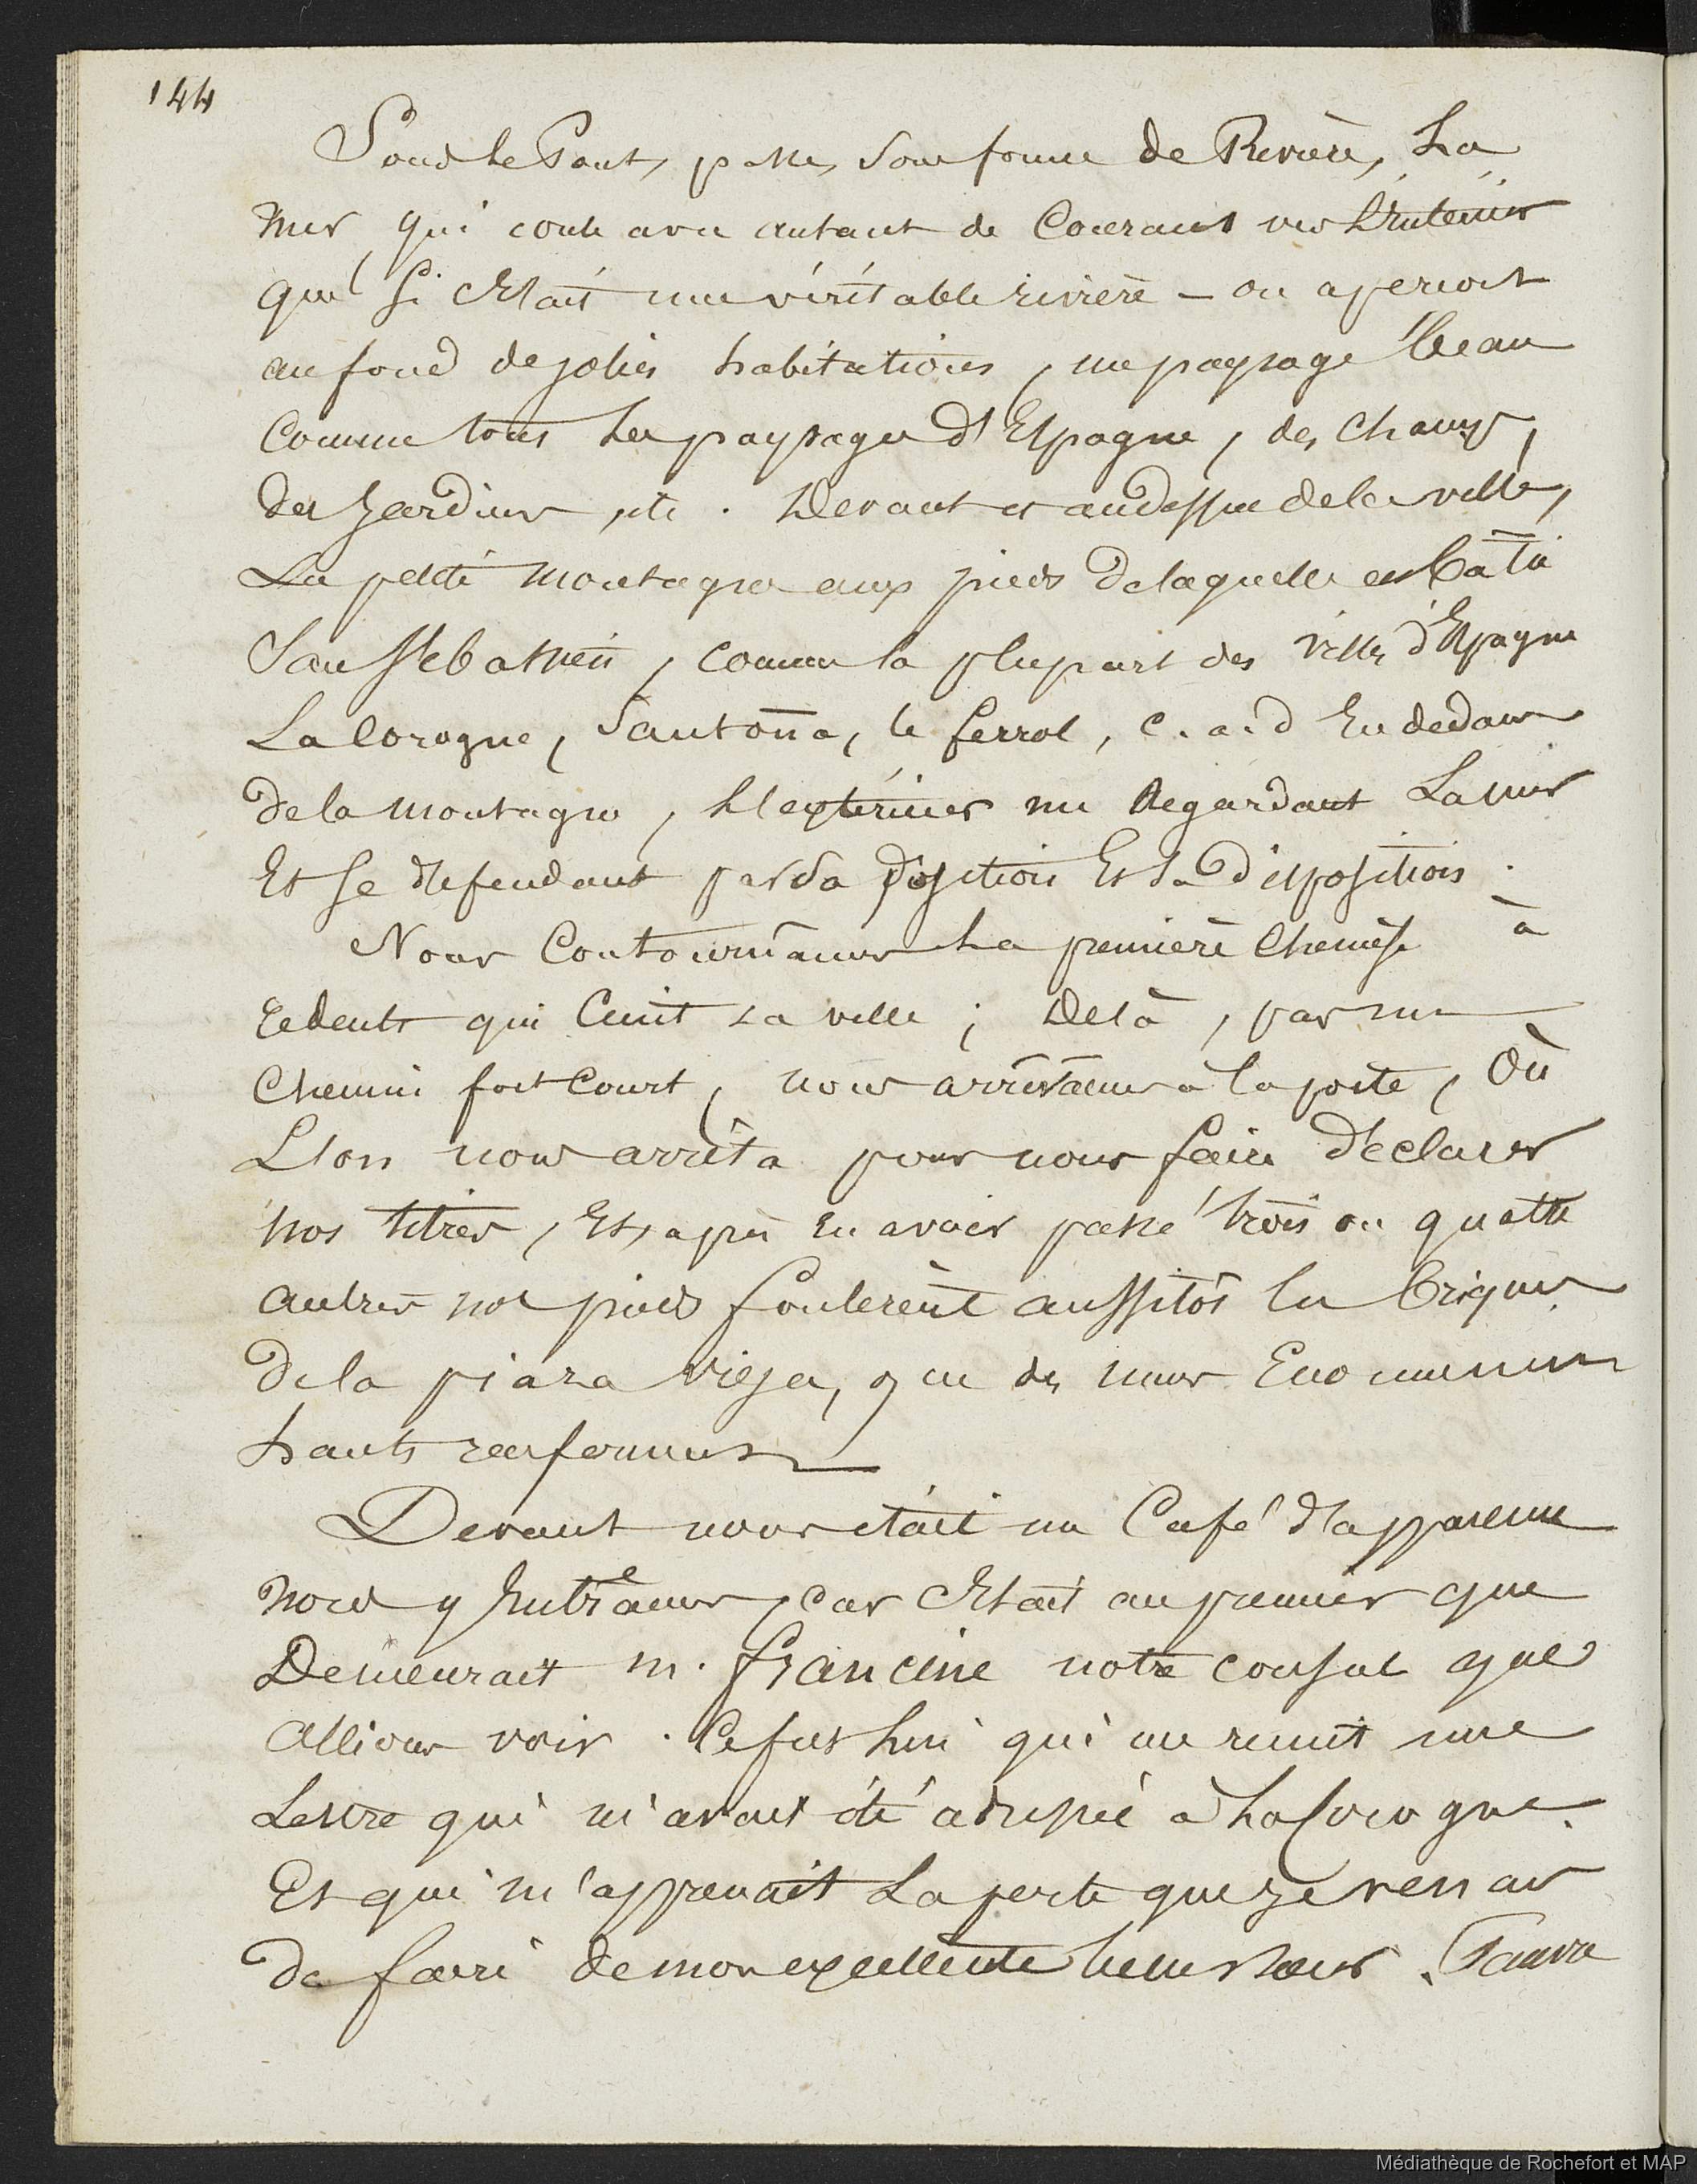 144
Sous le Pont, passe, sous forme de Rivière, La
Mer, qui coule avec autant de Courant vers L'Intérieur
que si c'Etait une véritable rivière – on aperçoit
au fond de jolies habitations, un paysage beau
Comme tous Les paysages d'Espagne, des Champs,
des Jardins, etc. Devant et audessus de la ville,
La petite Montagne aux pieds de laquelle est bâtie
San Sebastien, comme la plupart des Villes d'Espagne
La Corogne, Santona, le ferrol, c.a.d En dedans
de la Montagne, L'extérieur nu Regardant La mer
Et se défendant par sa position Et sa disposition.
Nous Contournâmes La première Chemise à
redents qui Ceint La ville ; De là, par un
Chemin fort Court, nous arrivâmes à la porte, Où
L'on nous arrêta pour nous faire déclarer
nos titres, Et, après En avoir passé trois ou quatre
autres nos pieds foulèrent aussitôt les briques
de la piaza vieja, que des murs Enormément
hauts renferment
Devant nous était un Café d'apparence
Nous y Entrâmes, car c'Etait au premier que
Demeurait m. francine notre consul que
allions voir. Ce fut Lui qui me remit une
Lettre qui m'avait été adressée à La Corogne.
Et qui m'apprenait La perte que je venais
de faire de mon excellente belle soeur. Pauvre
Médiathèque de Rochefort et MAP